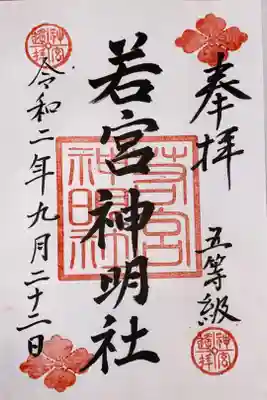 奉拝
五等級
若宮神明社
若宮
神明社
令和二年九月二十二日
神宮
遥拝
神宮
遥拝